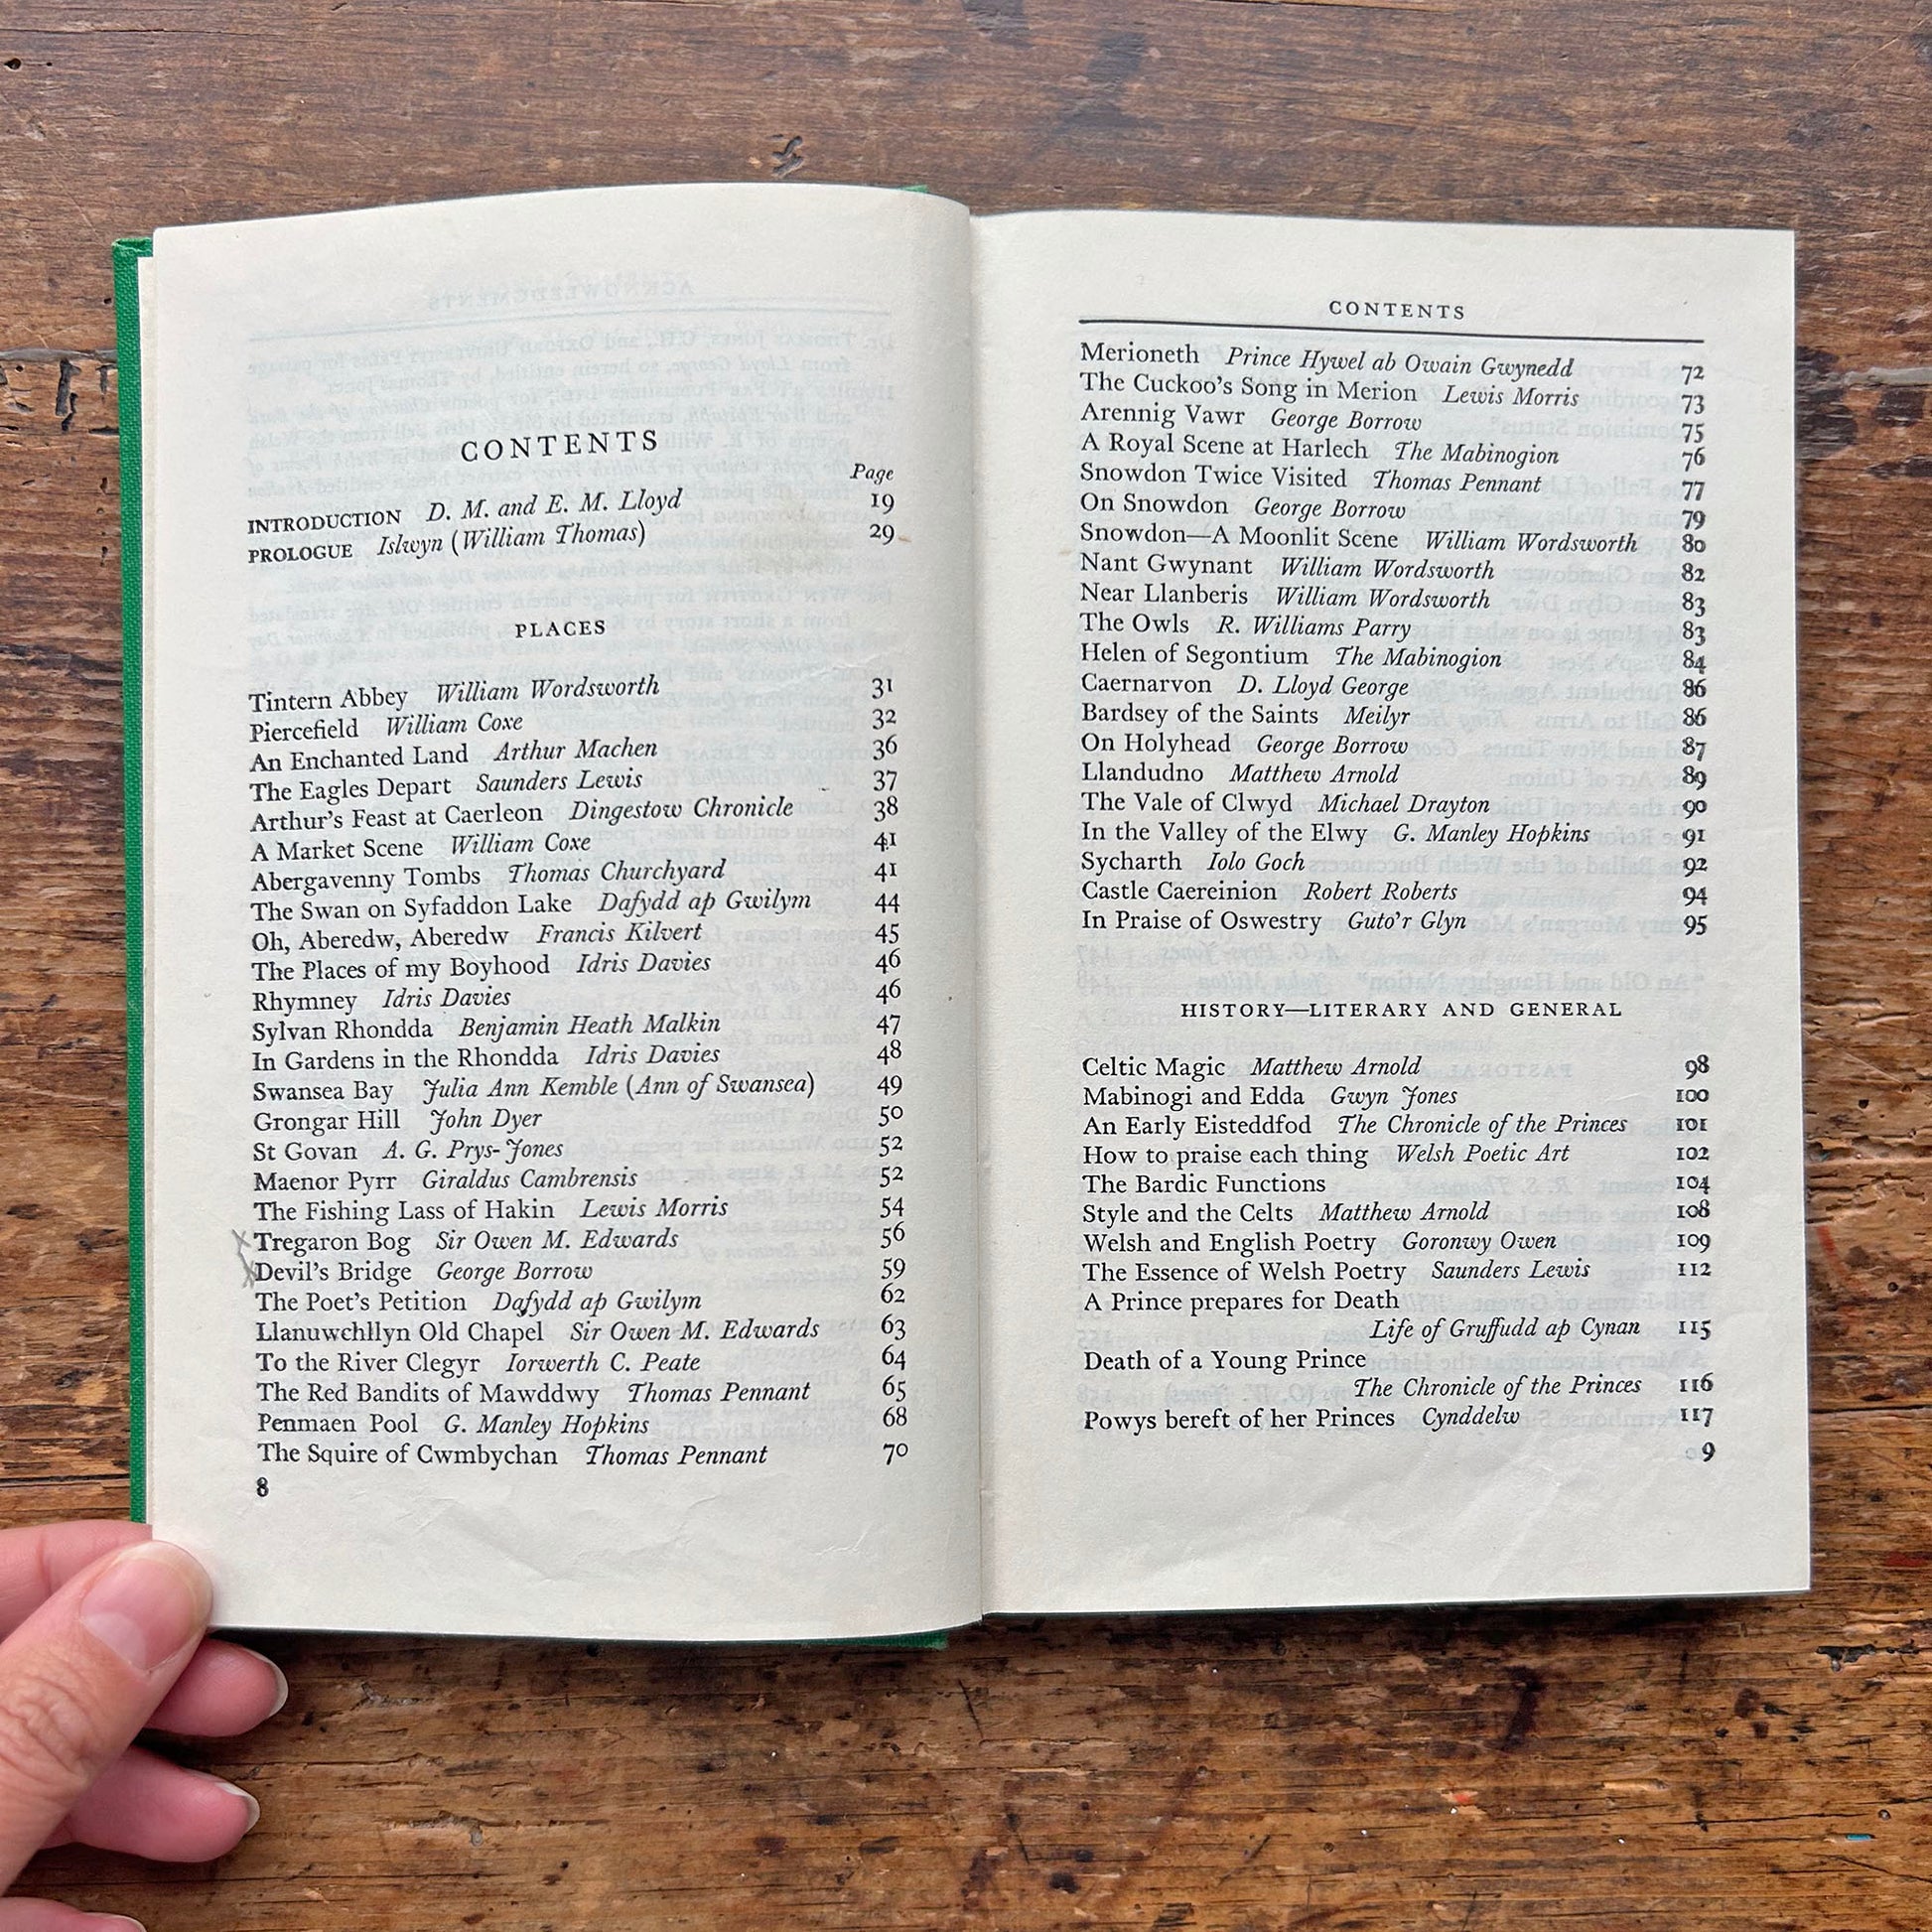 CONTENTS
Page
INTRODUCTION D. M. and E. M. Lloyd 19
PROLOGUE Islwyn (William Thomas) 29
PLACES
Tintern Abbey William Wordsworth 31
Piercefield William Coxe 32
An Enchanted Land Arthur Machen 36
The Eagles Depart Saunders Lewis 37
Arthur's Feast at Caerleon Dingestow Chronicle 38
A Market Scene William Coxe 41
Abergavenny Tombs Thomas Churchyard 41
The Swan on Syfaddon Lake Dafydd ap Gwilym 44
Oh, Aberedw, Aberedw Francis Kilvert 45
The Places of my Boyhood Idris Davies 46
Rhymney Idris Davies 46
Sylvan Rhondda Benjamin Heath Malkin 47
In Gardens in the Rhondda Idris Davies 48
Swansea Bay Julia Ann Kemble (Ann of Swansea) 49
Grongar Hill John Dyer 50
St Govan A. G. Prys-Jones 52
Maenor Pyrr Giraldus Cambrensis 52
The Fishing Lass of Hakin Lewis Morris 54
Tregaron Bog Sir Owen M. Edwards 56
Devil's Bridge George Borrow 59
The Poet's Petition Dafydd ap Gwilym 62
Llanuwchllyn Old Chapel Sir Owen M. Edwards 63
To the River Clegyr Iorwerth C. Peate 64
The Red Bandits of Mawddwy Thomas Pennant 65
Penmaen Pool G. Manley Hopkins 68
The Squire of Cwmbychan Thomas Pennant 70
8
CONTENTS
Merioneth Prince Hywel ab Owain Gwynedd 72
The Cuckoo's Song in Merion Lewis Morris 73
Arennig Vawr George Borrow 75
A Royal Scene at Harlech The Mabinogion 76
Snowdon Twice Visited Thomas Pennant 77
On Snowdon George Borrow 79
Snowdon—A Moonlit Scene William Wordsworth 80
Nant Gwynant William Wordsworth 82
Near Llanberis William Wordsworth 83
The Owls R. Williams Parry 83
Helen of Segontium The Mabinogion 84
Caernarvon D. Lloyd George 86
Bardsey of the Saints Meilyr 86
On Holyhead George Borrow 87
Llandudno Matthew Arnold 89
The Vale of Clwyd Michael Drayton 90
In the Valley of the Elwy G. Manley Hopkins 91
Sycharth Iolo Goch 92
Castle Caereinion Robert Roberts 94
In Praise of Oswestry Guto'r Glyn 95
HISTORY—LITERARY AND GENERAL
Celtic Magic Matthew Arnold 98
Mabinogi and Edda Gwyn Jones 100
An Early Eisteddfod The Chronicle of the Princes 101
How to praise each thing Welsh Poetic Art 102
The Bardic Functions 104
Style and the Celts Matthew Arnold 108
Welsh and English Poetry Goronwy Owen 109
The Essence of Welsh Poetry Saunders Lewis 112
A Prince prepares for Death
Life of Gruffudd ap Cynan 115
Death of a Young Prince
The Chronicle of the Princes 116
Powys bereft of her Princes Cynddelw 117
9